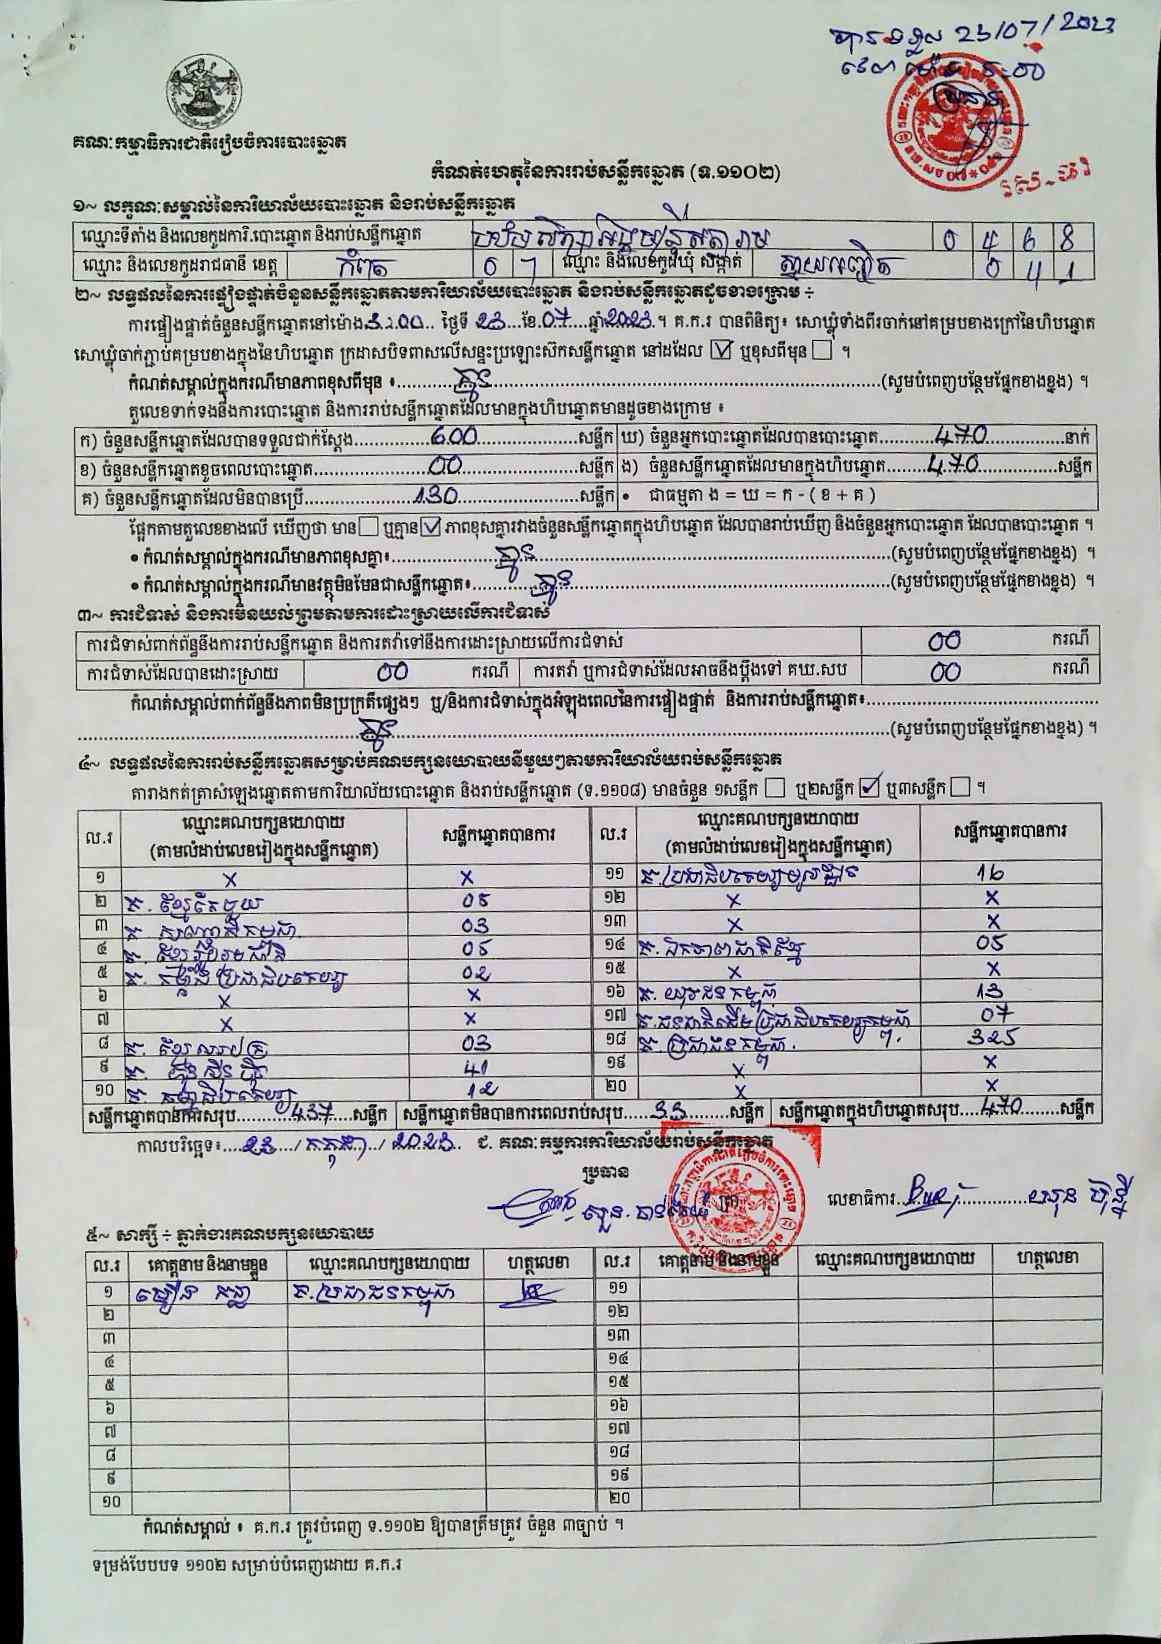 បានទទួល 23/07/2023
គណៈកម្មាធិការជាតិរៀបចំការបោះឆ្នោត
កំណត់ហេតុនៃការរាប់សន្លឹកឆ្នោត (ទ.១១០២)
១~ លក្ខណៈសម្គាល់នៃការិយាល័យបោះឆ្នោត និងរាប់សន្លឹកឆ្នោត
ឈ្មោះទីតាំង និងលេខកូដការិ.បោះឆ្នោត និងរាប់សន្លឹកឆ្នោត 0 4 6 8
ឈ្មោះ និងលេខកូដរាជធានី ខេត្ត កំពត 0 7 ឈ្មោះ និងលេខកូដឃុំ សង្កាត់ 0 4 1
២~ លទ្ធផលនៃការផ្ទៀងផ្ទាត់ចំនួនសន្លឹកឆ្នោតតាមការិយាល័យបោះឆ្នោត និងរាប់សន្លឹកឆ្នោតដូចខាងក្រោម ÷
ការផ្ទៀងផ្ទាត់ចំនួនសន្លឹកឆ្នោតនៅម៉ោង 3:00 ថ្ងៃទី 23 ខែ 07 ឆ្នាំ 2023 ។ គ.ក.រ បានពិនិត្យ៖ សោឃ្លុំទាំងពីរចាក់នៅគម្របខាងក្រៅនៃហិបឆ្នោត
សោឃ្លុំចាក់ភ្ជាប់គម្របខាងក្នុងនៃហិបឆ្នោត ក្រដាសបិទពាសលើសន្ទះប្រឡោះស៊កសន្លឹកឆ្នោត នៅដដែល ☑ ឬខុសពីមុន ☐ ។
កំណត់សម្គាល់ក្នុងករណីមានភាពខុសពីមុន ៖ គ្មាន (សូមបំពេញបន្ថែមផ្នែកខាងខ្នង) ។
តួលេខទាក់ទងនឹងការបោះឆ្នោត និងការរាប់សន្លឹកឆ្នោតដែលមានក្នុងហិបឆ្នោតមានដូចខាងក្រោម ៖
ក) ចំនួនសន្លឹកឆ្នោតដែលបានទទួលជាក់ស្តែង 600 សន្លឹក ឃ) ចំនួនអ្នកបោះឆ្នោតដែលបានបោះឆ្នោត 470 នាក់
ខ) ចំនួនសន្លឹកឆ្នោតខូចពេលបោះឆ្នោត 00 សន្លឹក ង) ចំនួនសន្លឹកឆ្នោតដែលមានក្នុងហិបឆ្នោត 470 សន្លឹក
គ) ចំនួនសន្លឹកឆ្នោតដែលមិនបានប្រើ 130 សន្លឹក • ជាធម្មតា ង = ឃ = ក - ( ខ + គ )
ផ្អែកតាមតួលេខខាងលើ ឃើញថា មាន ☐ ឬគ្មាន ☑ ភាពខុសគ្នារវាងចំនួនសន្លឹកឆ្នោតក្នុងហិបឆ្នោត ដែលបានរាប់ឃើញ និងចំនួនអ្នកបោះឆ្នោត ដែលបានបោះឆ្នោត ។
• កំណត់សម្គាល់ក្នុងករណីមានភាពខុសគ្នា៖ គ្មាន (សូមបំពេញបន្ថែមផ្នែកខាងខ្នង) ។
• កំណត់សម្គាល់ក្នុងករណីមានវត្ថុមិនមែនជាសន្លឹកឆ្នោត៖ គ្មាន (សូមបំពេញបន្ថែមផ្នែកខាងខ្នង) ។
៣~ ការជំទាស់ និងការមិនយល់ព្រមតាមការដោះស្រាយលើការជំទាស់
ការជំទាស់ពាក់ព័ន្ធនឹងការរាប់សន្លឹកឆ្នោត និងការតវ៉ាទៅនឹងការដោះស្រាយលើការជំទាស់ 00 ករណី
ការជំទាស់ដែលបានដោះស្រាយ 00 ករណី ការតវ៉ា ឬការជំទាស់ដែលអាចនឹងប្តឹងទៅ គឃ.សប 00 ករណី
កំណត់សម្គាល់ពាក់ព័ន្ធនឹងភាពមិនប្រក្រតីផ្សេងៗ ឬ/និងការជំទាស់ក្នុងអំឡុងពេលនៃការផ្ទៀងផ្ទាត់ និងការរាប់សន្លឹកឆ្នោត៖
គ្មាន (សូមបំពេញបន្ថែមផ្នែកខាងខ្នង) ។
៤~ លទ្ធផលនៃការរាប់សន្លឹកឆ្នោតសម្រាប់គណបក្សនយោបាយនីមួយៗតាមការិយាល័យរាប់សន្លឹកឆ្នោត
តារាងកត់ត្រាសំឡេងឆ្នោតតាមការិយាល័យបោះឆ្នោត និងរាប់សន្លឹកឆ្នោត (ទ.១១០៨) មានចំនួន ១សន្លឹក ☐ ឬ២សន្លឹក ☑ ឬ៣សន្លឹក ☐ ។
ល.រ ឈ្មោះគណបក្សនយោបាយ (តាមលំដាប់លេខរៀងក្នុងសន្លឹកឆ្នោត) សន្លឹកឆ្នោតបានការ ល.រ ឈ្មោះគណបក្សនយោបាយ (តាមលំដាប់លេខរៀងក្នុងសន្លឹកឆ្នោត) សន្លឹកឆ្នោតបានការ
១ x x ១១ គ.ប្រជាធិបតេយ្យមូលដ្ឋាន 16
២ គ. ខ្មែរតែមួយ 05 ១២ x x
៣ 03 ១៣ x x
៤ 05 ១៤ គ. ឯកភាពជាតិខ្មែរ 05
៥ គ. កម្លាំងប្រជាធិបតេយ្យ 02 ១៥ x x
៦ x x ១៦ គ. យុវជនកម្ពុជា 13
៧ x x ១៧ គ.ជនជាតិដើមប្រជាធិបតេយ្យកម្ពុជា 07
៨ 03 ១៨ គ.ប្រជាជនកម្ពុជា. 325
៩ គ. ហ្វ៊ុនស៊ីនប៉ិច 41 ១៩ x x
១០ 12 ២០ x x
សន្លឹកឆ្នោតបានការសរុប 437 សន្លឹក សន្លឹកឆ្នោតមិនបានការពេលរាប់សរុប 33 សន្លឹក សន្លឹកឆ្នោតក្នុងហិបឆ្នោតសរុប 470 សន្លឹក
កាលបរិច្ឆេទ៖ 23 / កក្កដា / 2023 ជ. គណៈកម្មការការិយាល័យរាប់សន្លឹកឆ្នោត
ប្រធាន
លេខាធិការ
៥~ សាក្សី ÷ ភ្នាក់ងារគណបក្សនយោបាយ
ល.រ គោត្តនាម និងនាមខ្លួន ឈ្មោះគណបក្សនយោបាយ ហត្ថលេខា ល.រ គោត្តនាម និងនាមខ្លួន ឈ្មោះគណបក្សនយោបាយ ហត្ថលេខា
១ គ.ប្រជាជនកម្ពុជា ១១
២ ១២
៣ ១៣
៤ ១៤
៥ ១៥
៦ ១៦
៧ ១៧
៨ ១៨
៩ ១៩
១០ ២០
កំណត់សម្គាល់ ៖ គ.ក.រ ត្រូវបំពេញ ទ.១១០២ ឱ្យបានត្រឹមត្រូវ ចំនួន ៣ច្បាប់ ។
ទម្រង់បែបបទ ១១០២ សម្រាប់បំពេញដោយ គ.ក.រ